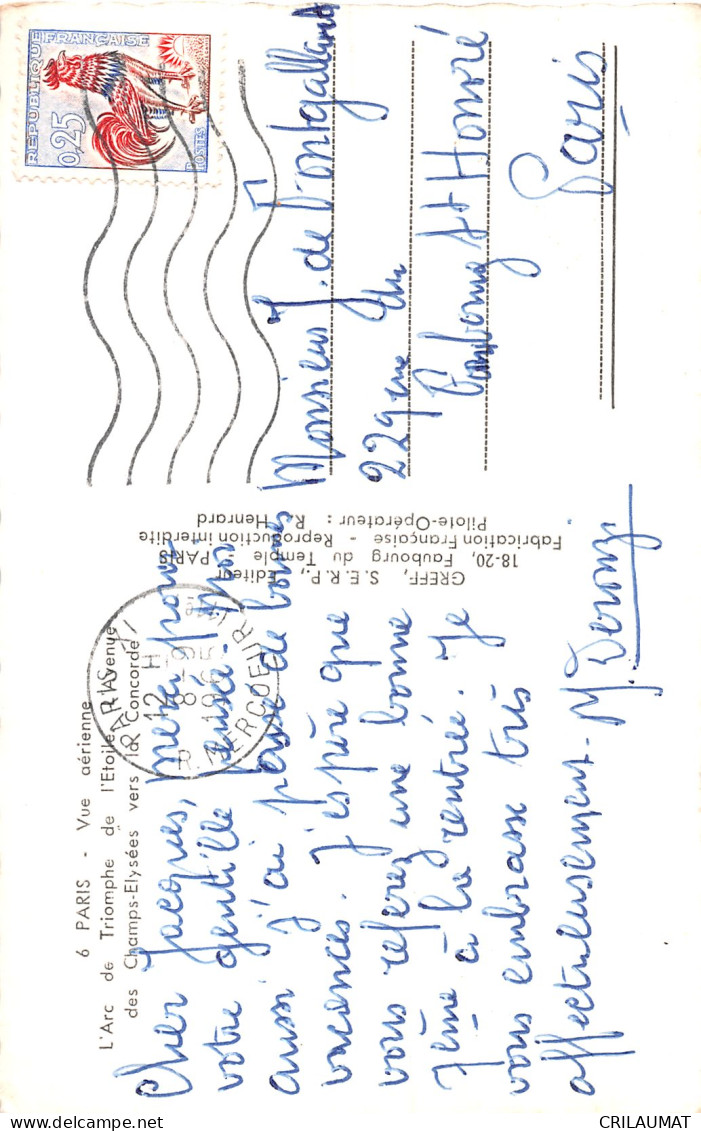 6 PARIS - Vue aérienne
L'Arc de Triomphe de l'Etoile, l'Avenue
des Champs-Elysées vers la Concorde
PARIS XI
12 H
8-9
1965
R. MERCOEUR
REPUBLIQUE FRANÇAISE
0,25
POSTES
Cher Jacques, merci pour
votre gentille pensée. Moi
aussi j'ai passé de bonnes
vacances. J'espère que
vous referez une bonne
7ème à la rentrée. Je
vous embrasse très
affectueusement. M.
GREFF, S.E.R.P., Editeur
18-20, Faubourg du Temple - PARIS
Fabrication Française - Reproduction interdite
Pilote-Opérateur : R. Henrard
Monsieur J. de Montgallard
229 rue du
Faubourg St Honoré
Paris
CRILAUMAT